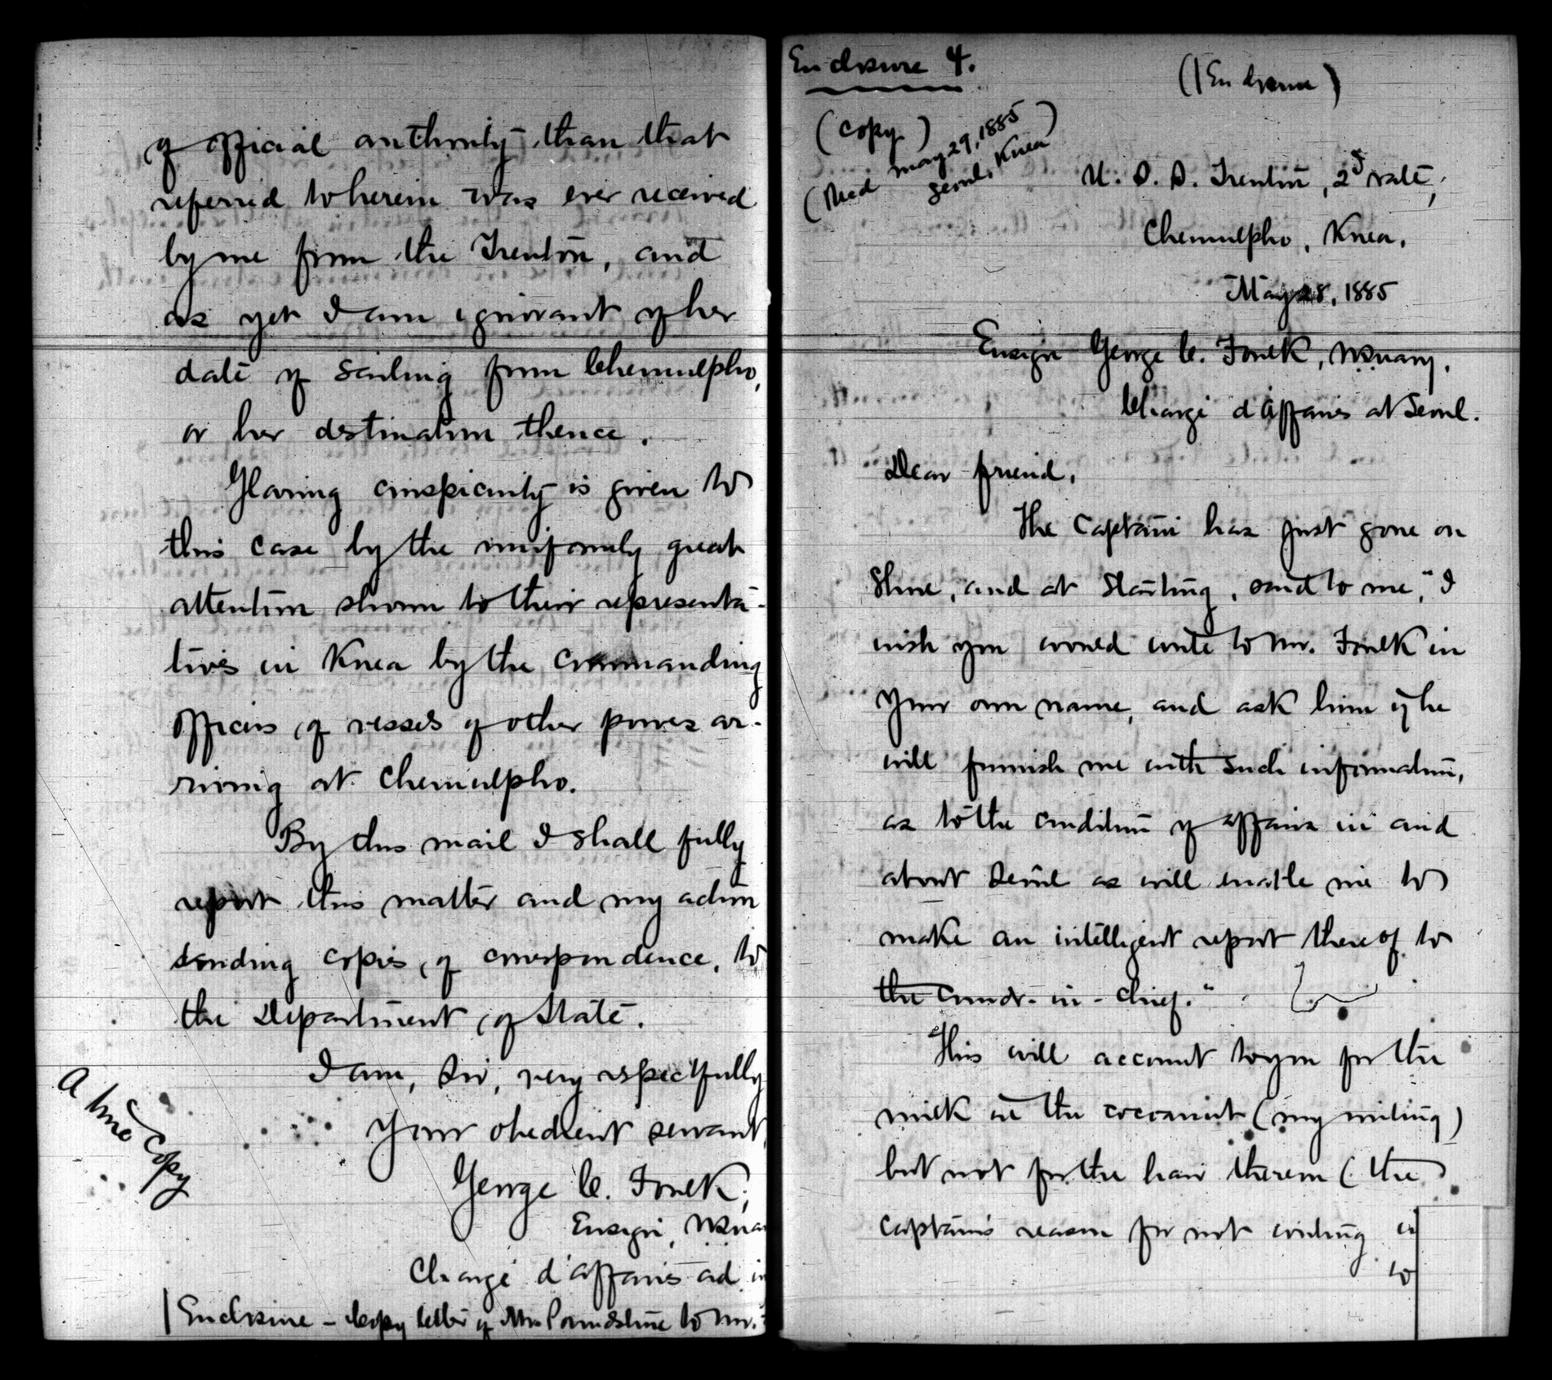 of official authority than that
referred to herein was ever received
by me from the Trenton, and
as yet I am ignorant of her
date of sailing from Chemulpho,
or her destination thence.
Glaring conspicuity is given to
this case by the uniformly great
attention shown to their representa-
tives in Korea by the commanding
officers of vessels of other powers ar-
riving at Chemulpho.
By this mail I shall fully
report this matter and my action
sending copies of correspondence, to
the Department of State.
I am, Sir, very respectfully
Your obedient servant
George C. Foulk,
Ensign,
Chargé d'affaires ad
A true copy
1 Enclosure - Copy letter of Mr. Poundstone to Mr.
Enclosure 4.
(1 Enclosure)
(Copy)
(Recd May 29, 1885)
Seoul, Korea
U. S. S. Trenton, 2d rate,
Chemulpho, Korea,
May 28, 1885
Ensign George C. Foulk, USNavy,
Chargé d'Affaires at Seoul.
Dear friend,
The Captain has just gone on
Shore, and at Starting, said to me, "I
wish you would write to Mr. Foulk in
your own name, and ask him if he
will furnish me with such information,
as to the condition of affairs in and
about Seoul as will enable me to
make an intelligent report thereof to
the Comdr-in-chief."
This will account to you for the
milk in the cocoanut (my writing)
but not for the hair thereon (the
captain's reason for not writing
to